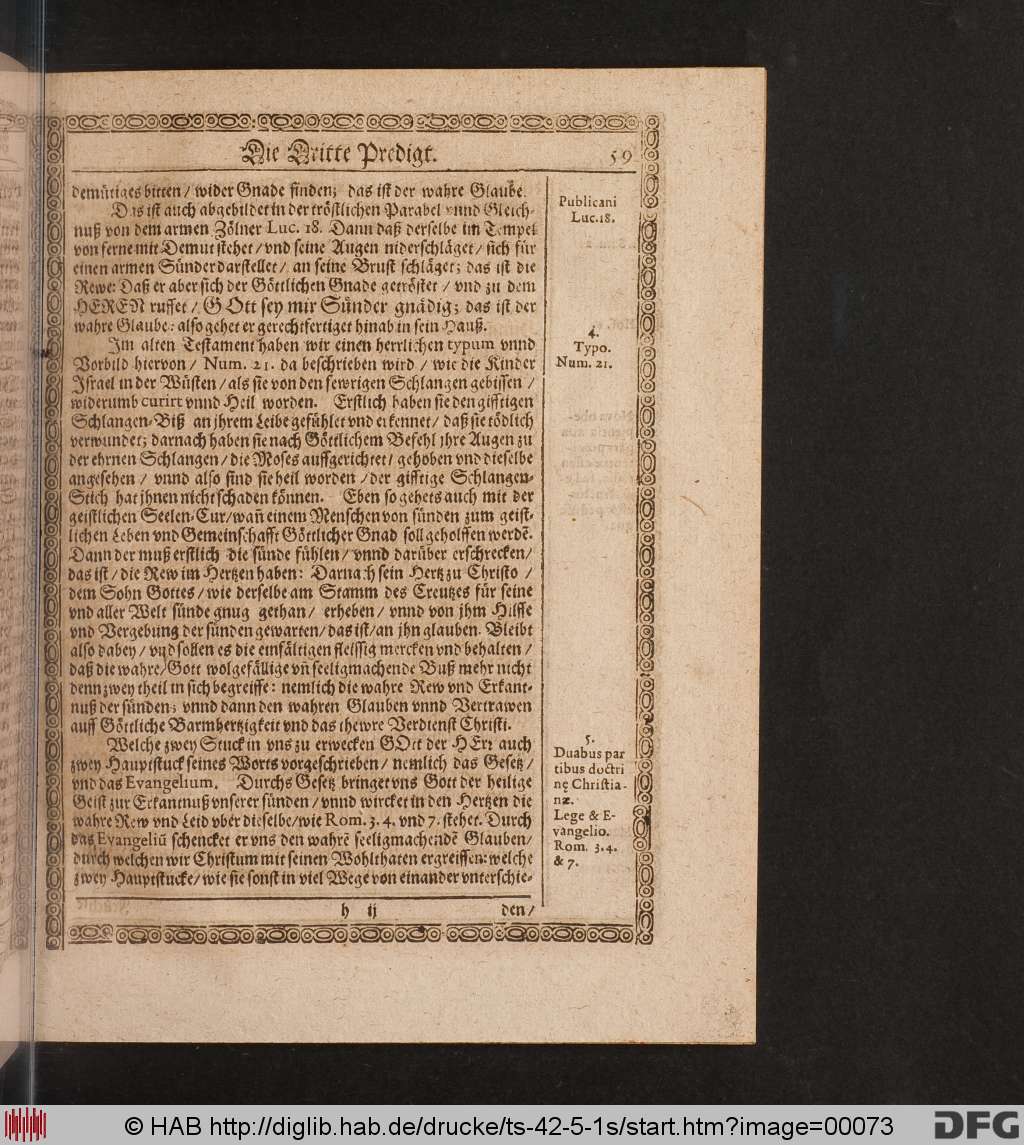 Die Dritte Predigt. 59
demütiges bitten / wider Gnade finden; das ist der wahre Glaube.
Das ist auch abgebildet in der tröstlichen Parabel vnnd Gleich-
nuß von dem armen Zölner Luc. 18. Dann daß derselbe im Tempel
von ferne mit Demut stehet / vnd seine Augen niderschläget / sich für
einen armen Sünder darstellet / an seine Brust schläget; das ist die
Rewe: Daß er aber sich der Göttlichen Gnade getröstet / vnd zu dem
HEREN ruffet / GOtt sey mir Sünder gnädig; das ist der
wahre Glaube: also gehet er gerechtfertiget hinab in sein Hauß.
Im alten Testament haben wir einen herrlichen typum vnnd
Vorbild hiervon / Num. 21. da beschrieben wird / wie die Kinder
Israel in der Wüsten / als sie von den fewrigen Schlangen gebissen /
widerumb curirt vnnd Heil worden. Erstlich haben sie den gifftigen
Schlangen-Biß an jhrem Leibe gefühlet vnd erkennet / daß sie tödlich
verwundet; darnach haben sie nach Göttlichem Befehl jhre Augen zu
der ehrnen Schlangen / die Moses auffgerichtet / gehoben vnd dieselbe
angesehen / vnnd also sind sie heil worden / der gifftige Schlangen-
Stich hat jhnen nicht schaden können. Eben so gehets auch mit der
geistlichen Seelen-Cur / wañ einem Menschen von sünden zum geist-
lichen Leben vnd Gemeinschafft Göttlicher Gnad soll geholffen werdē.
Dann der muß erstlich die sünde fühlen / vnnd darüber erschrecken /
das ist / die Rew im Hertzen haben: Darnach sein Hertz zu Christo /
dem Sohn Gottes / wie derselbe am Stamm des Creutzes für seine
vnd aller Welt sünde gnug gethan / erheben / vnnd von jhm Hilffe
vnd Vergebung der sünden gewarten / das ist / an jhn glauben. Bleibt
also dabey / vnd sollen es die einfältigen fleissig mercken vnd behalten /
daß die wahre / Gott wolgefällige vñ seeligmachende Buß mehr nicht
denn zwey theil in sich begreiffe: nemlich die wahre Rew vnd Erkant-
nuß der sünden; vnnd dann den wahren Glauben vnnd Vertrawen
auff Göttliche Barmhertzigkeit vnd das thewre Verdienst Christi.
Welche zwey Stuck in vns zu erwecken GOtt der HErr auch
zwey Hauptstuck seines Worts vorgeschrieben / nemlich das Gesetz /
vnd das Evangelium. Durchs Gesetz bringet vns Gott der heilige
Geist zur Erkantnuß vnserer sünden / vnnd wircket in den Hertzen die
wahre Rew vnd Leid vber dieselbe / wie Rom. 3. 4. vnd 7. stehet. Durch
das Evangeliū schencket er vns den wahrē seeligmachendē Glauben /
durch welchen wir Christum mit seinen Wohlthaten ergreiffen: welche
zwey Hauptstucke / wie sie sonst in viel Wege von einander vnterschie-
h ij den /
Publicani
Luc. 18.
4.
Typo.
Num. 21.
5.
Duabus par
tibus doctri
nę Christia-
næ.
Lege & E-
vangelio.
Rom. 3. 4.
& 7.
© HAB http://diglib.hab.de/drucke/ts-42-5-1s/start.htm?image=00073
DFG